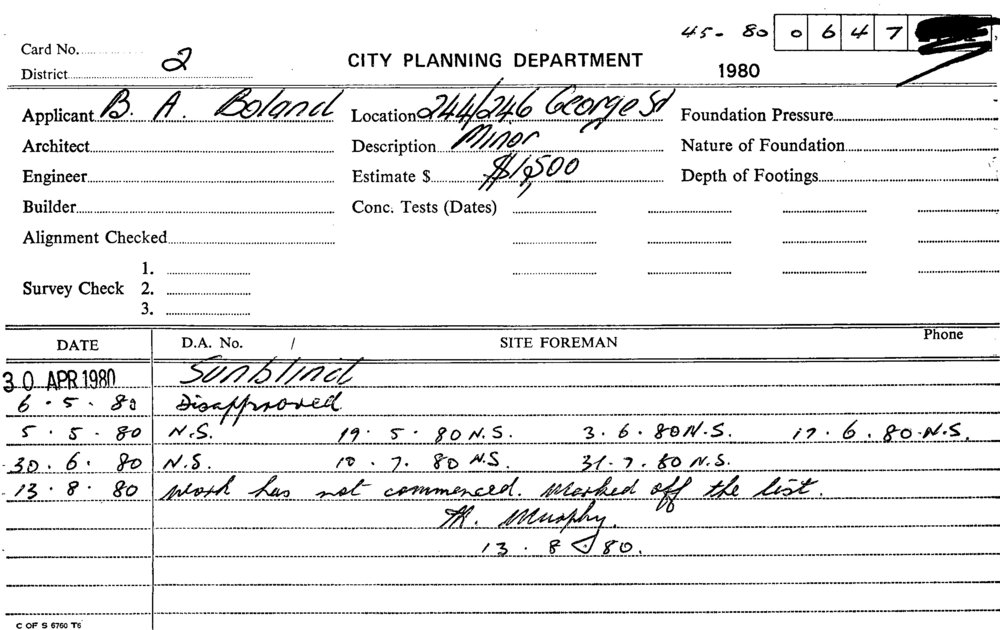 45-80 0647
Card No.
District 2
CITY PLANNING DEPARTMENT
1980
Applicant B. A. Boland Location 244/246 George St Foundation Pressure
Architect Description Minor Nature of Foundation
Engineer Estimate $ $1,500 Depth of Footings
Builder Conc. Tests (Dates)
Alignment Checked
1.
Survey Check 2.
3.
DATE D.A. No. / SITE FOREMAN Phone
30 APR 1980 Sunblind
6.5.80 Disapproved
5.5.80 N.S. 19.5.80 N.S. 3.6.80 N.S. 17.6.80.N.S.
30.6.80 N.S. 10.7.80 N.S. 31.7.80 N.S.
13.8.80 Work has not commenced. Marked off the list.
Murphy.
13.8.80.
C OF S 6760 T6